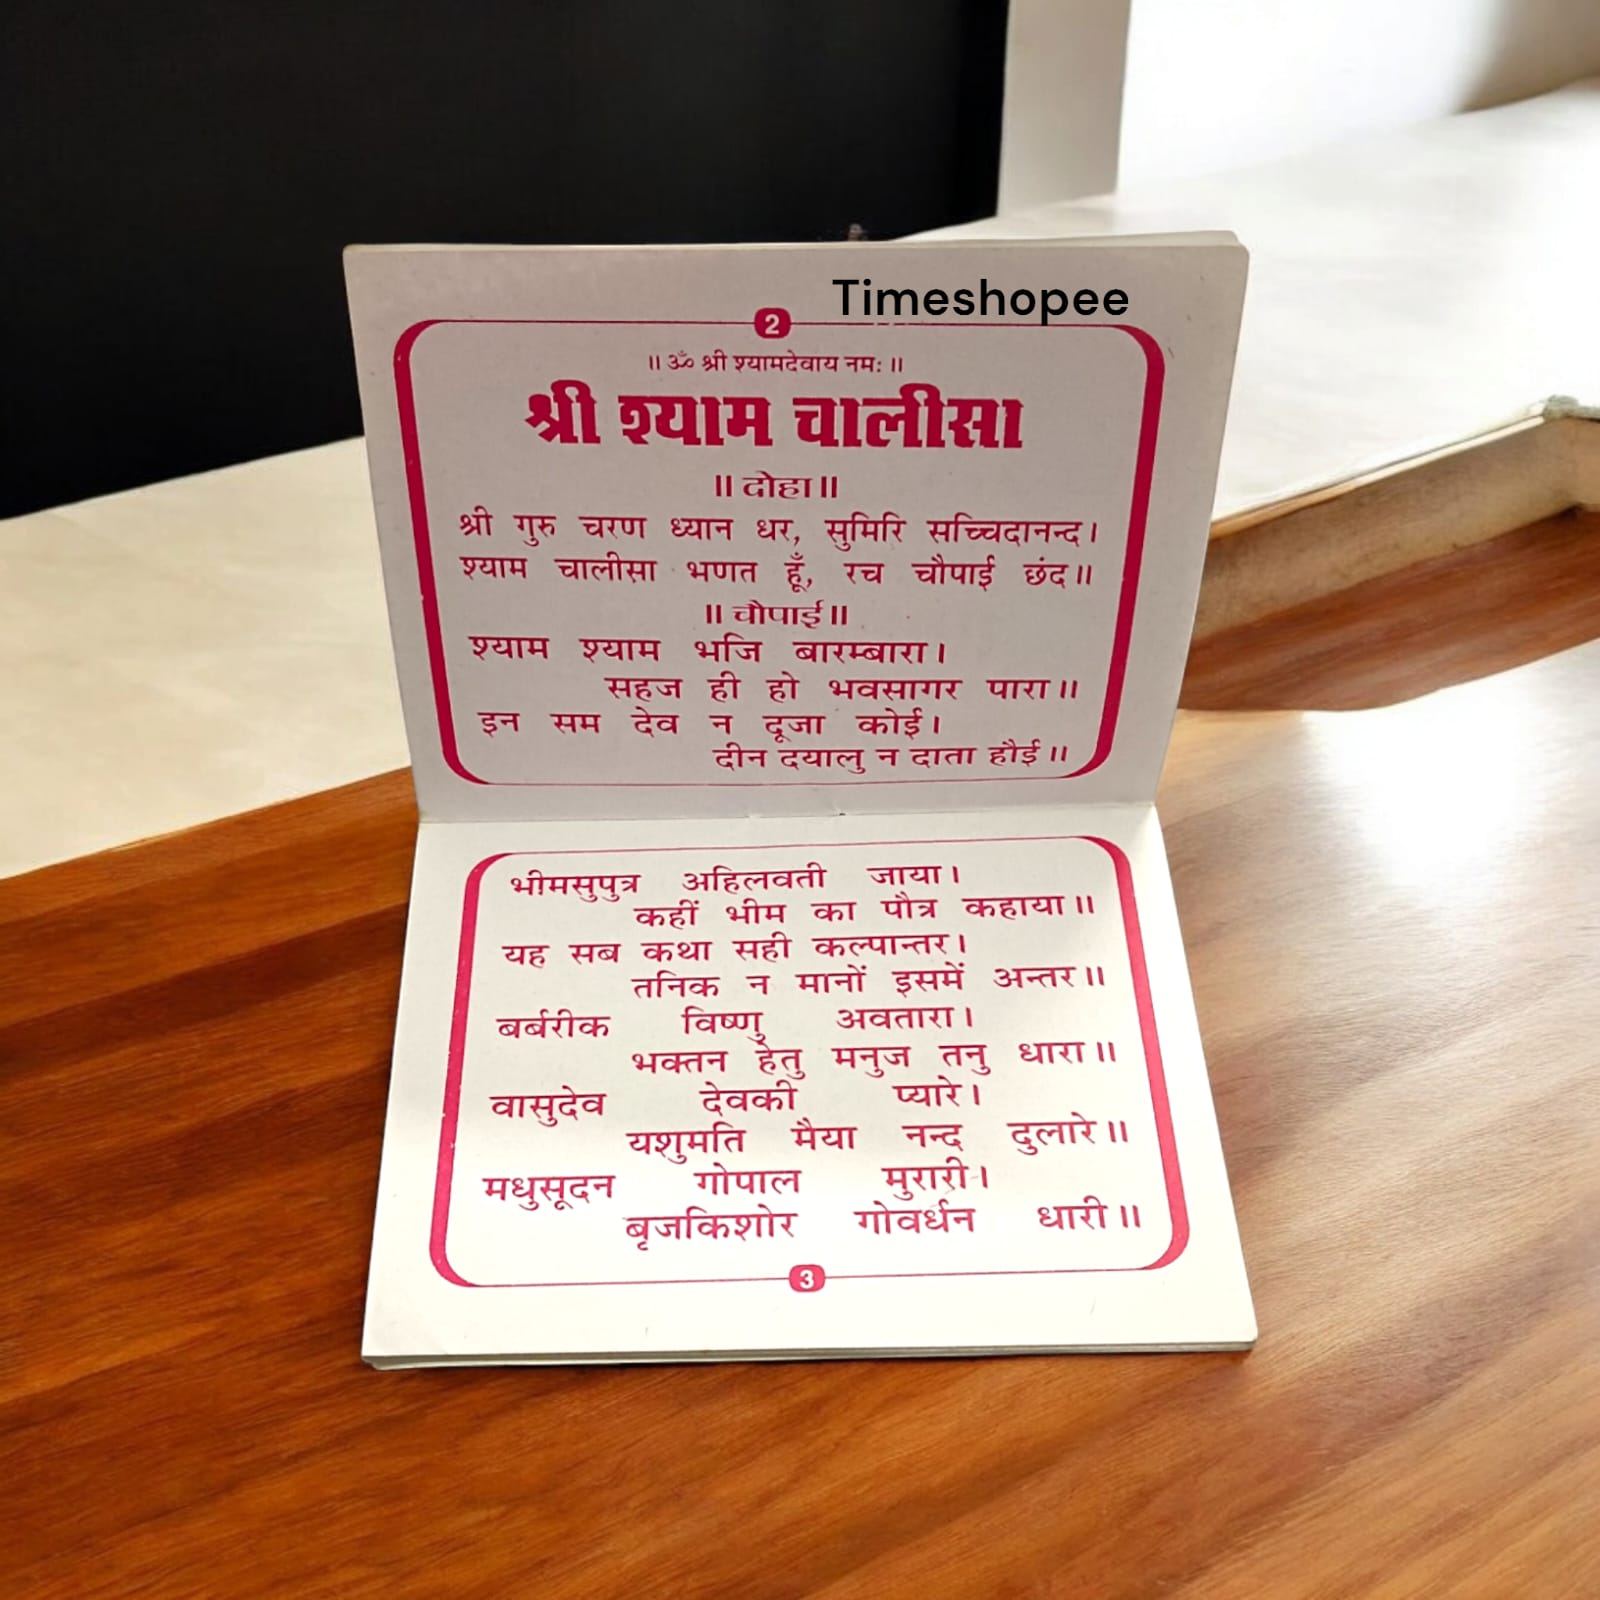 Timeshopee
2
॥ ॐ श्री श्यामदेवाय नमः ॥
श्री श्याम चालीसा
॥ दोहा ॥
श्री गुरु चरण ध्यान धर, सुमिरि सच्चिदानन्द।
श्याम चालीसा भणत हूँ, रच चौपाई छंद॥
॥ चौपाई ॥
श्याम श्याम भजि बारम्बारा।
सहज ही हो भवसागर पारा॥
इन सम देव न दूजा कोई।
दीन दयालु न दाता हौई॥
भीमसुपुत्र अहिलवती जाया।
कहीं भीम का पौत्र कहाया॥
यह सब कथा सही कल्पान्तर।
तनिक न मानों इसमें अन्तर॥
बर्बरीक विष्णु अवतारा।
भक्तन हेतु मनुज तनु धारा॥
वासुदेव देवकी प्यारे।
यशुमति मैया नन्द दुलारे॥
मधुसूदन गोपाल मुरारी।
बृजकिशोर गोवर्धन धारी॥
3